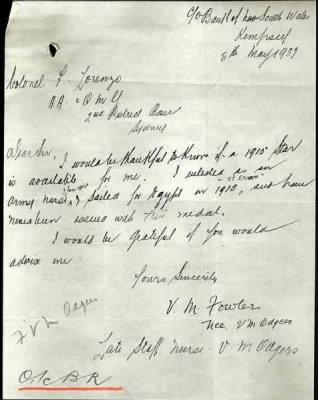 C/o Bank of New South Wales
Kempsey
8th May 1937
Colonel F. Lorenzo
A.A. & Q M G
2nd District Base
Sydney
Dear Sir,
I would be thankful to know if a 1915 Star
is available for me. I enlisted as an
army nurse, & sailed for Egypt in 1915, and have
never been issued with the medal.
I would be grateful if you would
advise me.
Yours Sincerely
V. M. Fowler
nee V M Odgers
Late Staff Nurse - V. M Odgers
F V M Odgers
O i/c B R